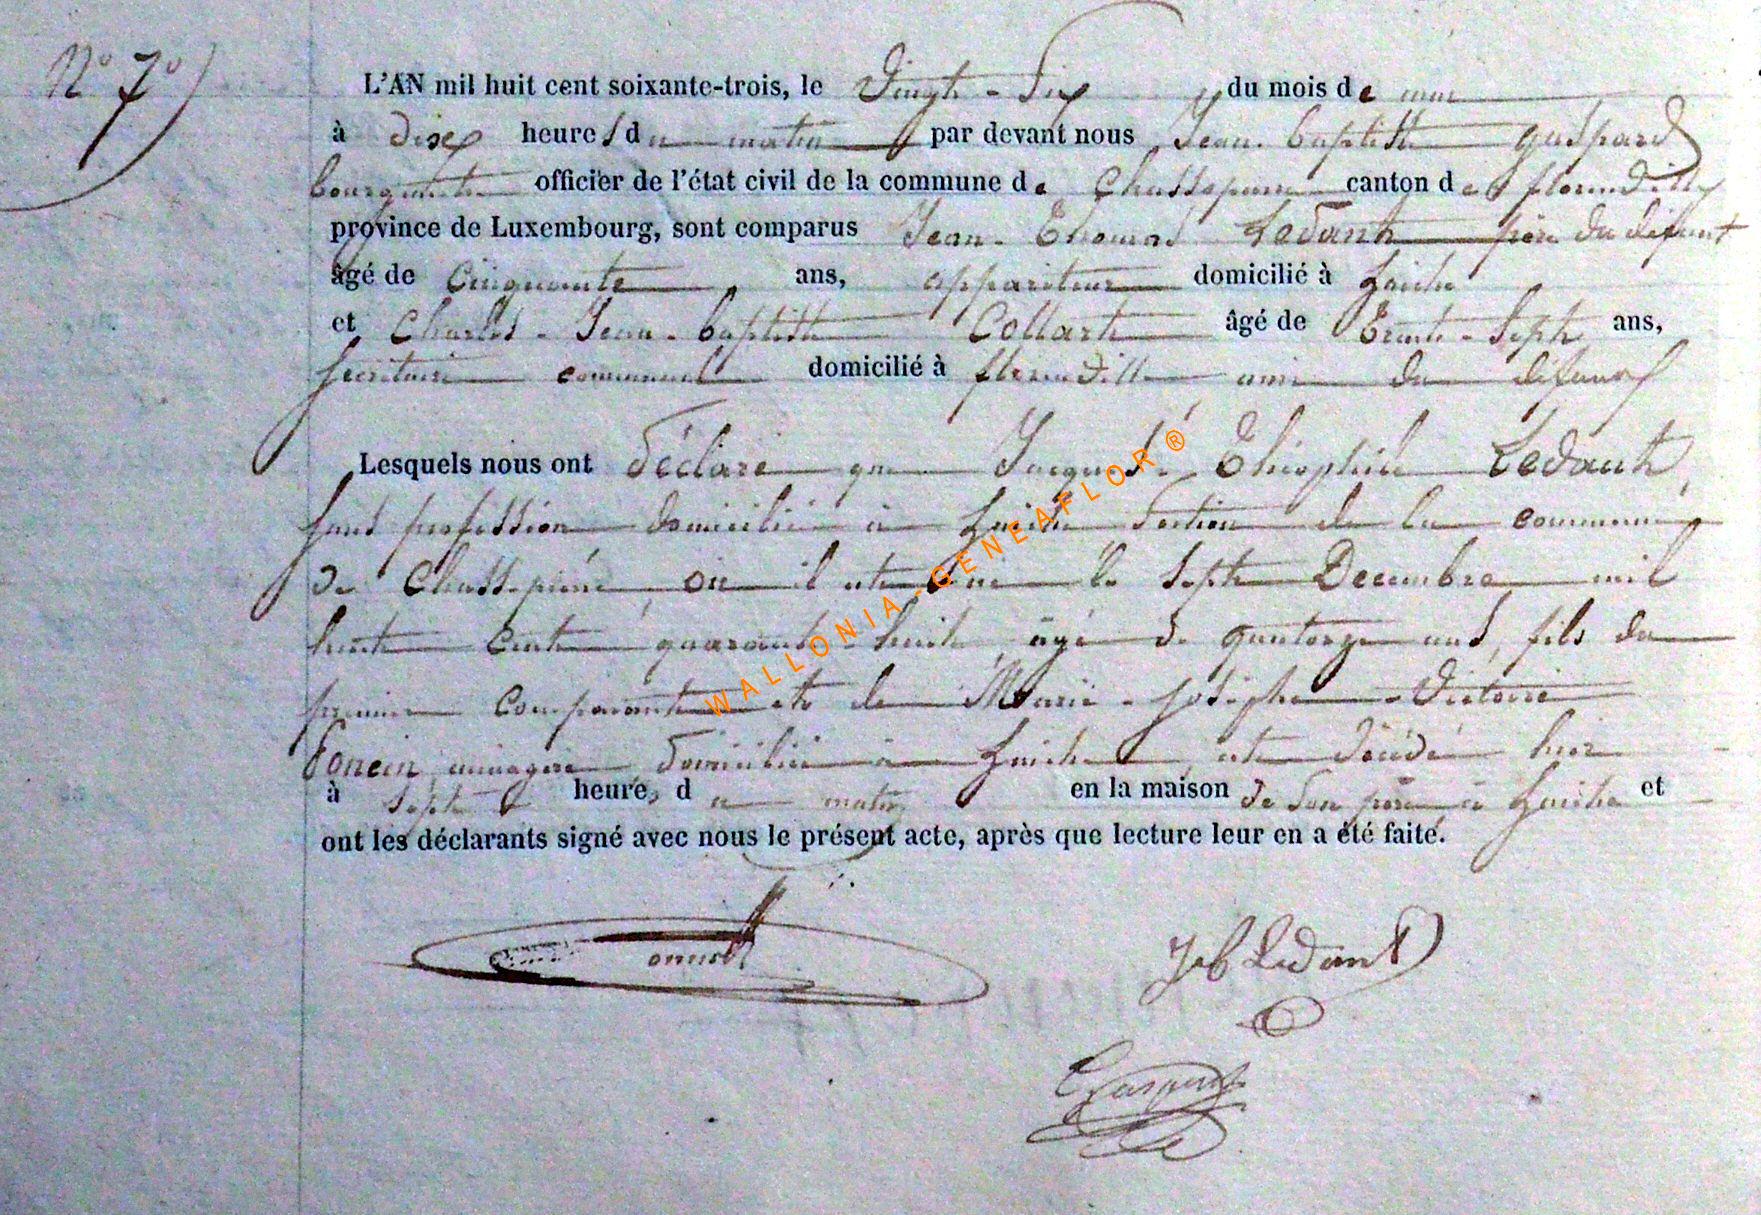 N° 7°)
L'AN mil huit cent soixante-trois, le Vingt-Six du mois de mai
à dix heures du matin par devant nous Jean-baptiste gaspard
bourgmestre officier de l'état civil de la commune de Chassepierre canton de florenville
province de Luxembourg, sont comparus Jean-Thomas Ledant père du défunt
âgé de Cinquante ans, appariteur domicilié à Laiche
et Charles-Jean-baptiste Collart âgé de Trente-Sept ans,
secrétaire communal domicilié à florenville ami du défunt
Lesquels nous ont déclaré que Jacques Théophile Ledant,
sans profession domicilié à Laiche Section de la commune
de Chassepierre où il est né le sept Decembre mil
huit Cent quarante-huit, âgé de quatorze ans, fils du
premier Comparant et de Marie-josephe-Victoire
ménagère domiciliée à Laiche, est décédé hier
à sept heures du matin en la maison de son père à Laiche et
ont les déclarants signé avec nous le présent acte, après que lecture leur en a été faite.
Ledant
WALLONIA-GENEAFLOR®